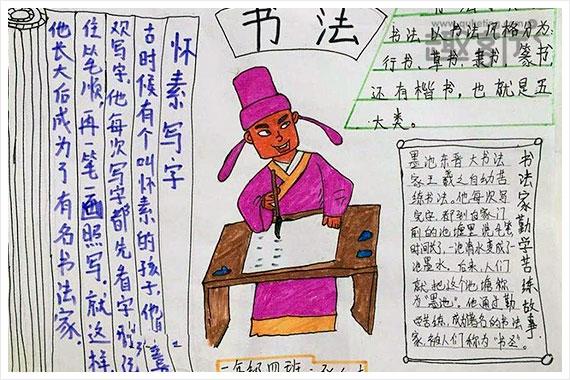 书法
怀素写字
古时候有个叫怀素的孩子,他喜
欢写字,他每次写字都先看字
住笔顺,再一笔一画照写,就这样
他长大后成为了有名书法家.
书法,以书法风格分为:
行书、草书、隶书、篆书、
还有楷书,也就是五
大类。
书法家勤学苦练故事
墨池东晋大书法
家王羲之自幼苦
练书法。他每次写
完字,都到自家门
前的池塘里洗毛笔,
时间长了,一池清水变成了一
池墨水,后来,人们
就把这个池塘称
为"墨池"。他通过勤
学苦练,成为著名的书法
家,被人们称为"书圣"。
年级四班